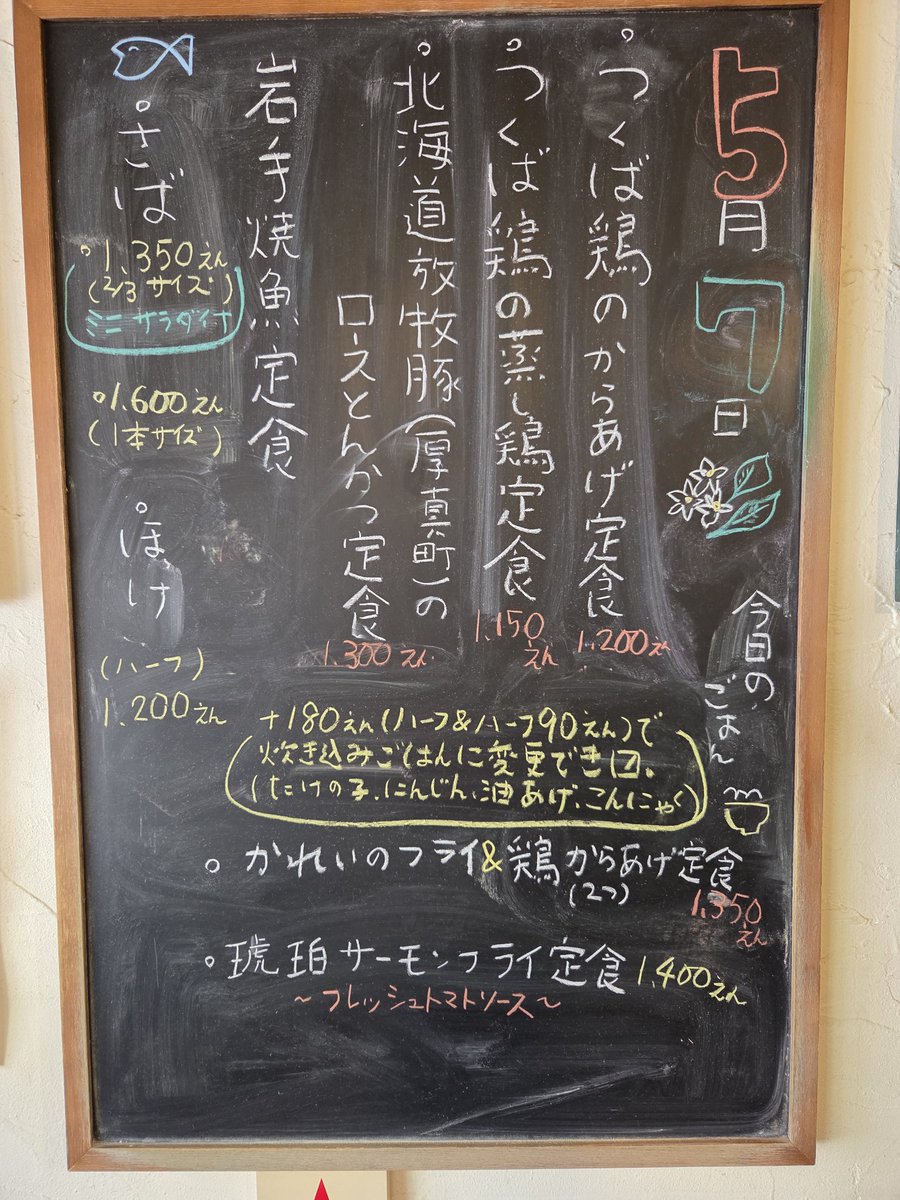 5月7日
今日のごはん
。つくば鶏のからあげ定食
1.200えん
。つくば鶏の蒸し鶏定食
1.150えん
。北海道放牧豚(厚真町)の
ロースとんかつ定食
1.300えん
岩手焼魚定食
。さば
。1.350えん
(2/3サイズ)
ミニサラダイナ
。1.600えん
(1本サイズ)
。ほっけ
(ハーフ)
1.200えん
+180えん(ハーフ&ハーフ90えん)で
炊き込みごはんに変更でき〼、
(たけの子、にんじん、油あげ、こんにゃく)
。かれいのフライ&鶏からあげ定食
(2つ)
1.350えん
。琥珀サーモンフライ定食 1.400えん
~フレッシュトマトソース~